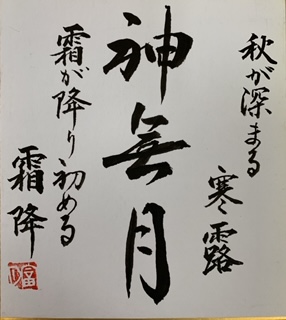 秋が深まる
寒露
神無月
霜が降り初める
霜降